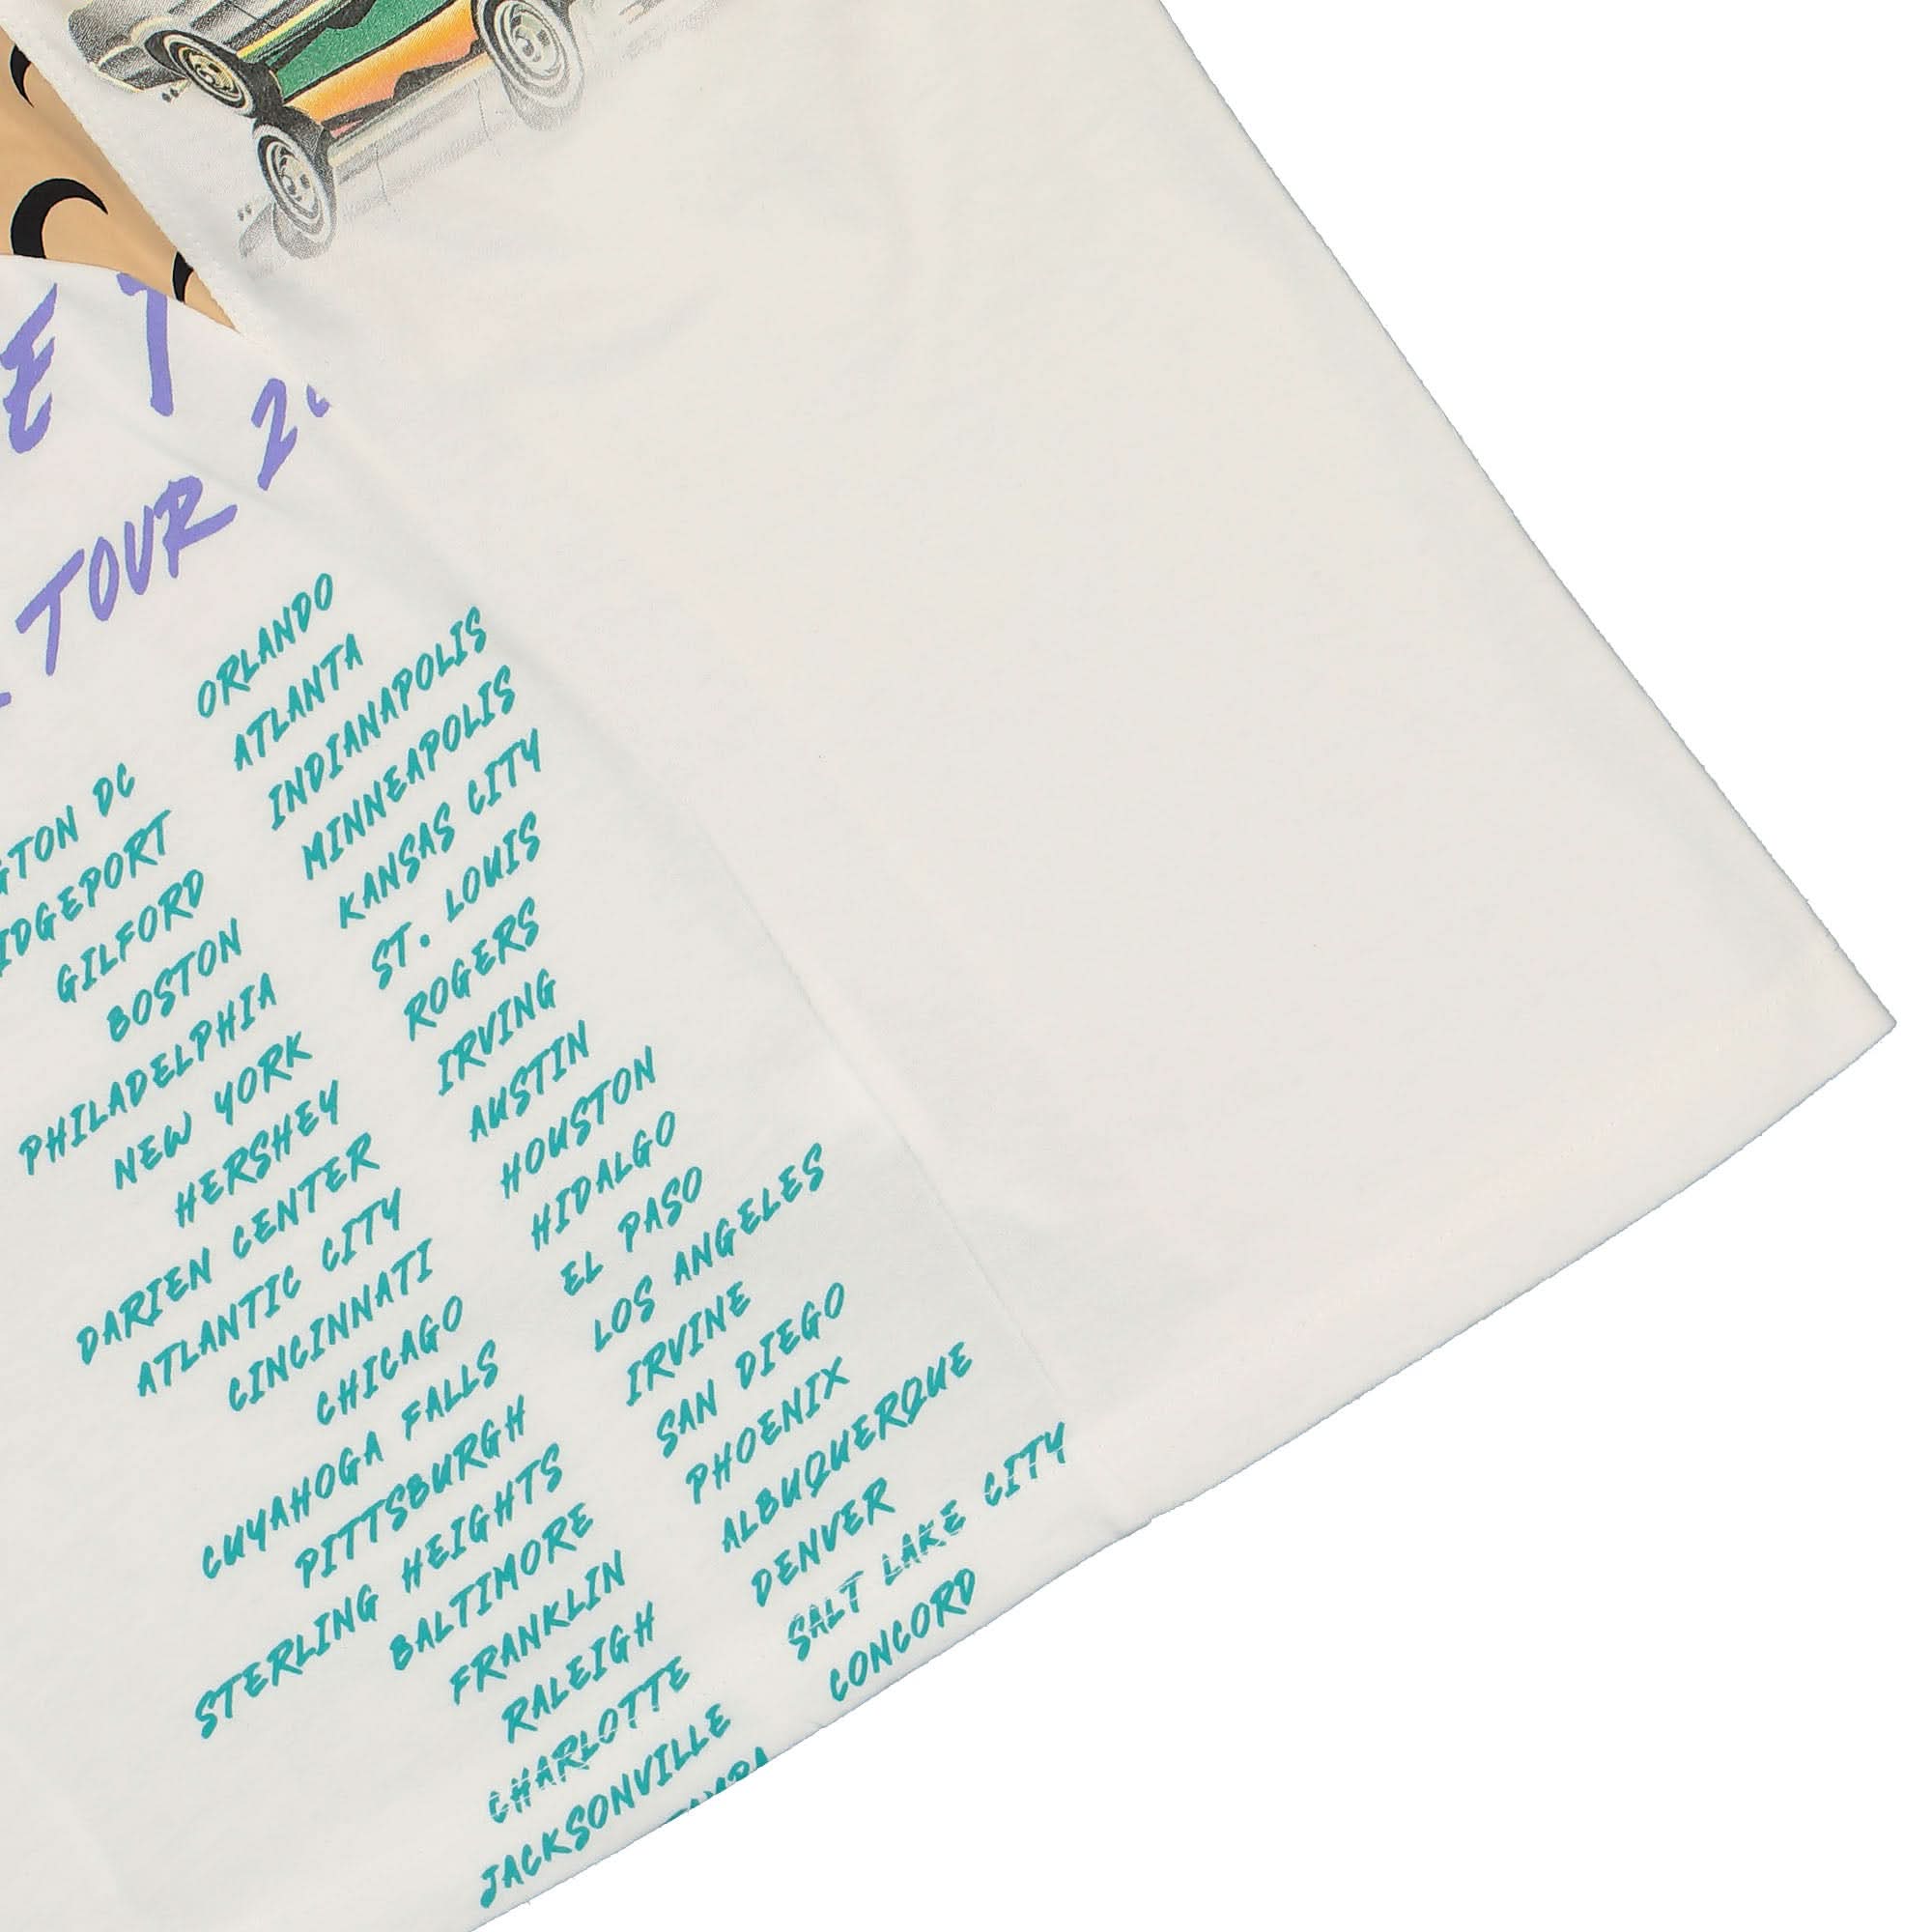 TOUR
GTON DC
IDGEPORT
GILFORD
BOSTON
PHILADELPHIA
NEW YORK
HERSHEY
DARIEN CENTER
ATLANTIC CITY
CINCINNATI
CHICAGO
CUYAHOGA FALLS
PITTSBURGH
STERLING HEIGHTS
BALTIMORE
FRANKLIN
RALEIGH
CHARLOTTE
JACKSONVILLE
ORLANDO
ATLANTA
INDIANAPOLIS
MINNEAPOLIS
KANSAS CITY
ST. LOUIS
ROGERS
IRVING
AUSTIN
HOUSTON
HIDALGO
EL PASO
LOS ANGELES
IRVINE
SAN DIEGO
PHOENIX
ALBUQUERQUE
DENVER
SALT LAKE CITY
CONCORD